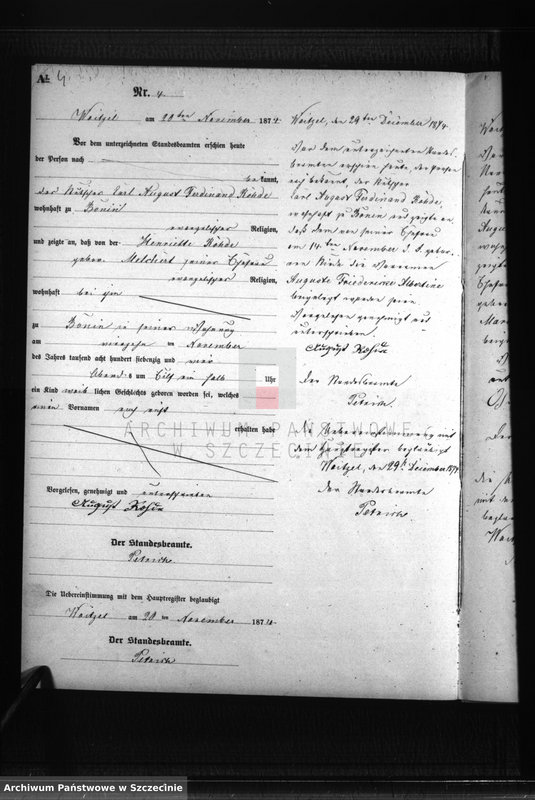 A
4
Nr. 4.
Weitzel am 20ten November 1874.
Vor dem unterzeichneten Standesbeamten erschien heute
der Person nach
bekannt,
der Kutscher Carl August Ferdinand Rohde
wohnhaft zu Bonin
evangelischer Religion,
und zeigte an, daß von der Henriette Rohde
geborn. Melchert seiner Ehefrau
evangelischer Religion,
wohnhaft bei ihm
zu Bonin in seiner Wohnung
am vierzehn ten November
des Jahres tausend acht hundert siebenzig und vier
Abends um Elf ein halb Uhr
ein Kind weiblichen Geschlechts geboren worden sei, welches
einen Vornamen noch nicht
erhalten habe
Vorgelesen, genehmigt und unterschrieben
August Rohde
Der Standesbeamte.
Petrick
Die Uebereinstimmung mit dem Hauptregister beglaubigt
Weitzel am 20 ten November 1874.
Der Standesbeamte.
Petrick
Weitzel, den 29ten December 1874.
Vor dem unterzeichneten Standes-
beamten erschien heute, der Person
nach bekannt, der Kutscher
Carl August Ferdinand Rohde,
wohnhaft zu Bonin und zeigte an,
daß dem von seiner Ehefrau
am 14ten November d. J. gebor-
nen Kinde die Vornamen
Auguste Friederike Albertine
beigelegt worden seien
Vorgelesen genehmigt und
unterschrieben.
August Rohde
Der Standesbeamte
Petrick
Die Uebereinstimmung mit
dem Hauptregister beglaubigt
Weitzel, den 29t. December 1874
Der Standesbeamte
Petrick
ARCHIWUM PAŃSTWOWE
W SZCZECINIE
Archiwum Państwowe w Szczecinie